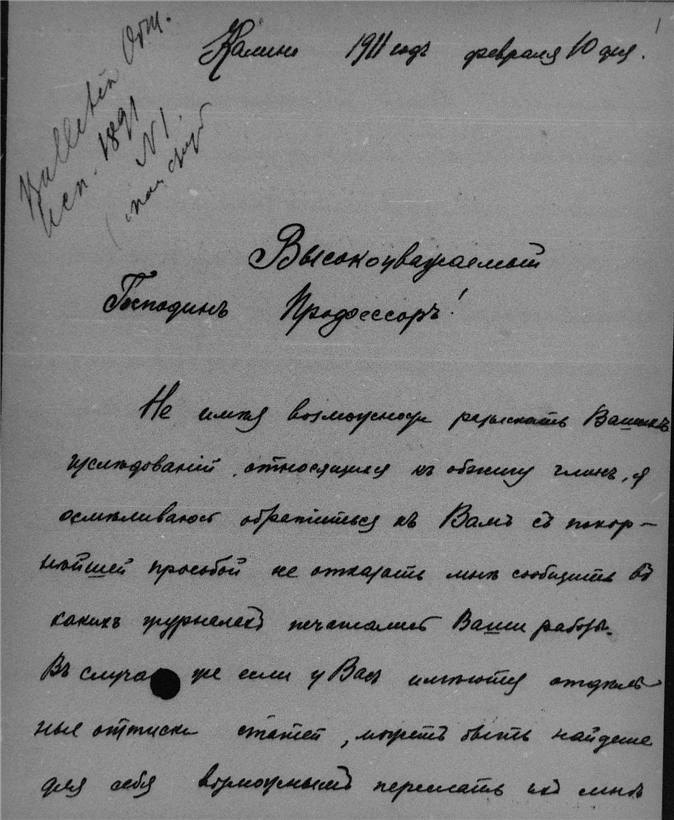 1
Bulletin
1891
N 1.
Калино 1911 годъ февраля 10 дня.
Высокоуважаемый
Господинъ Профессоръ!
Не имѣя возможности разыскать Вашихъ
изслѣдованій, относящихся къ обжигу глинъ, я
осмѣливаюсь обратиться къ Вамъ съ покор-
нѣйшей прозьбой не отказать мнѣ сообщить въ
какихъ журналахъ печатались Ваши работы.
Въ случаѣ же если у Васъ имѣются отдѣль
ные оттиски статей, можетъ быть найдете
для себя возможнымъ переслать ихъ мнѣ